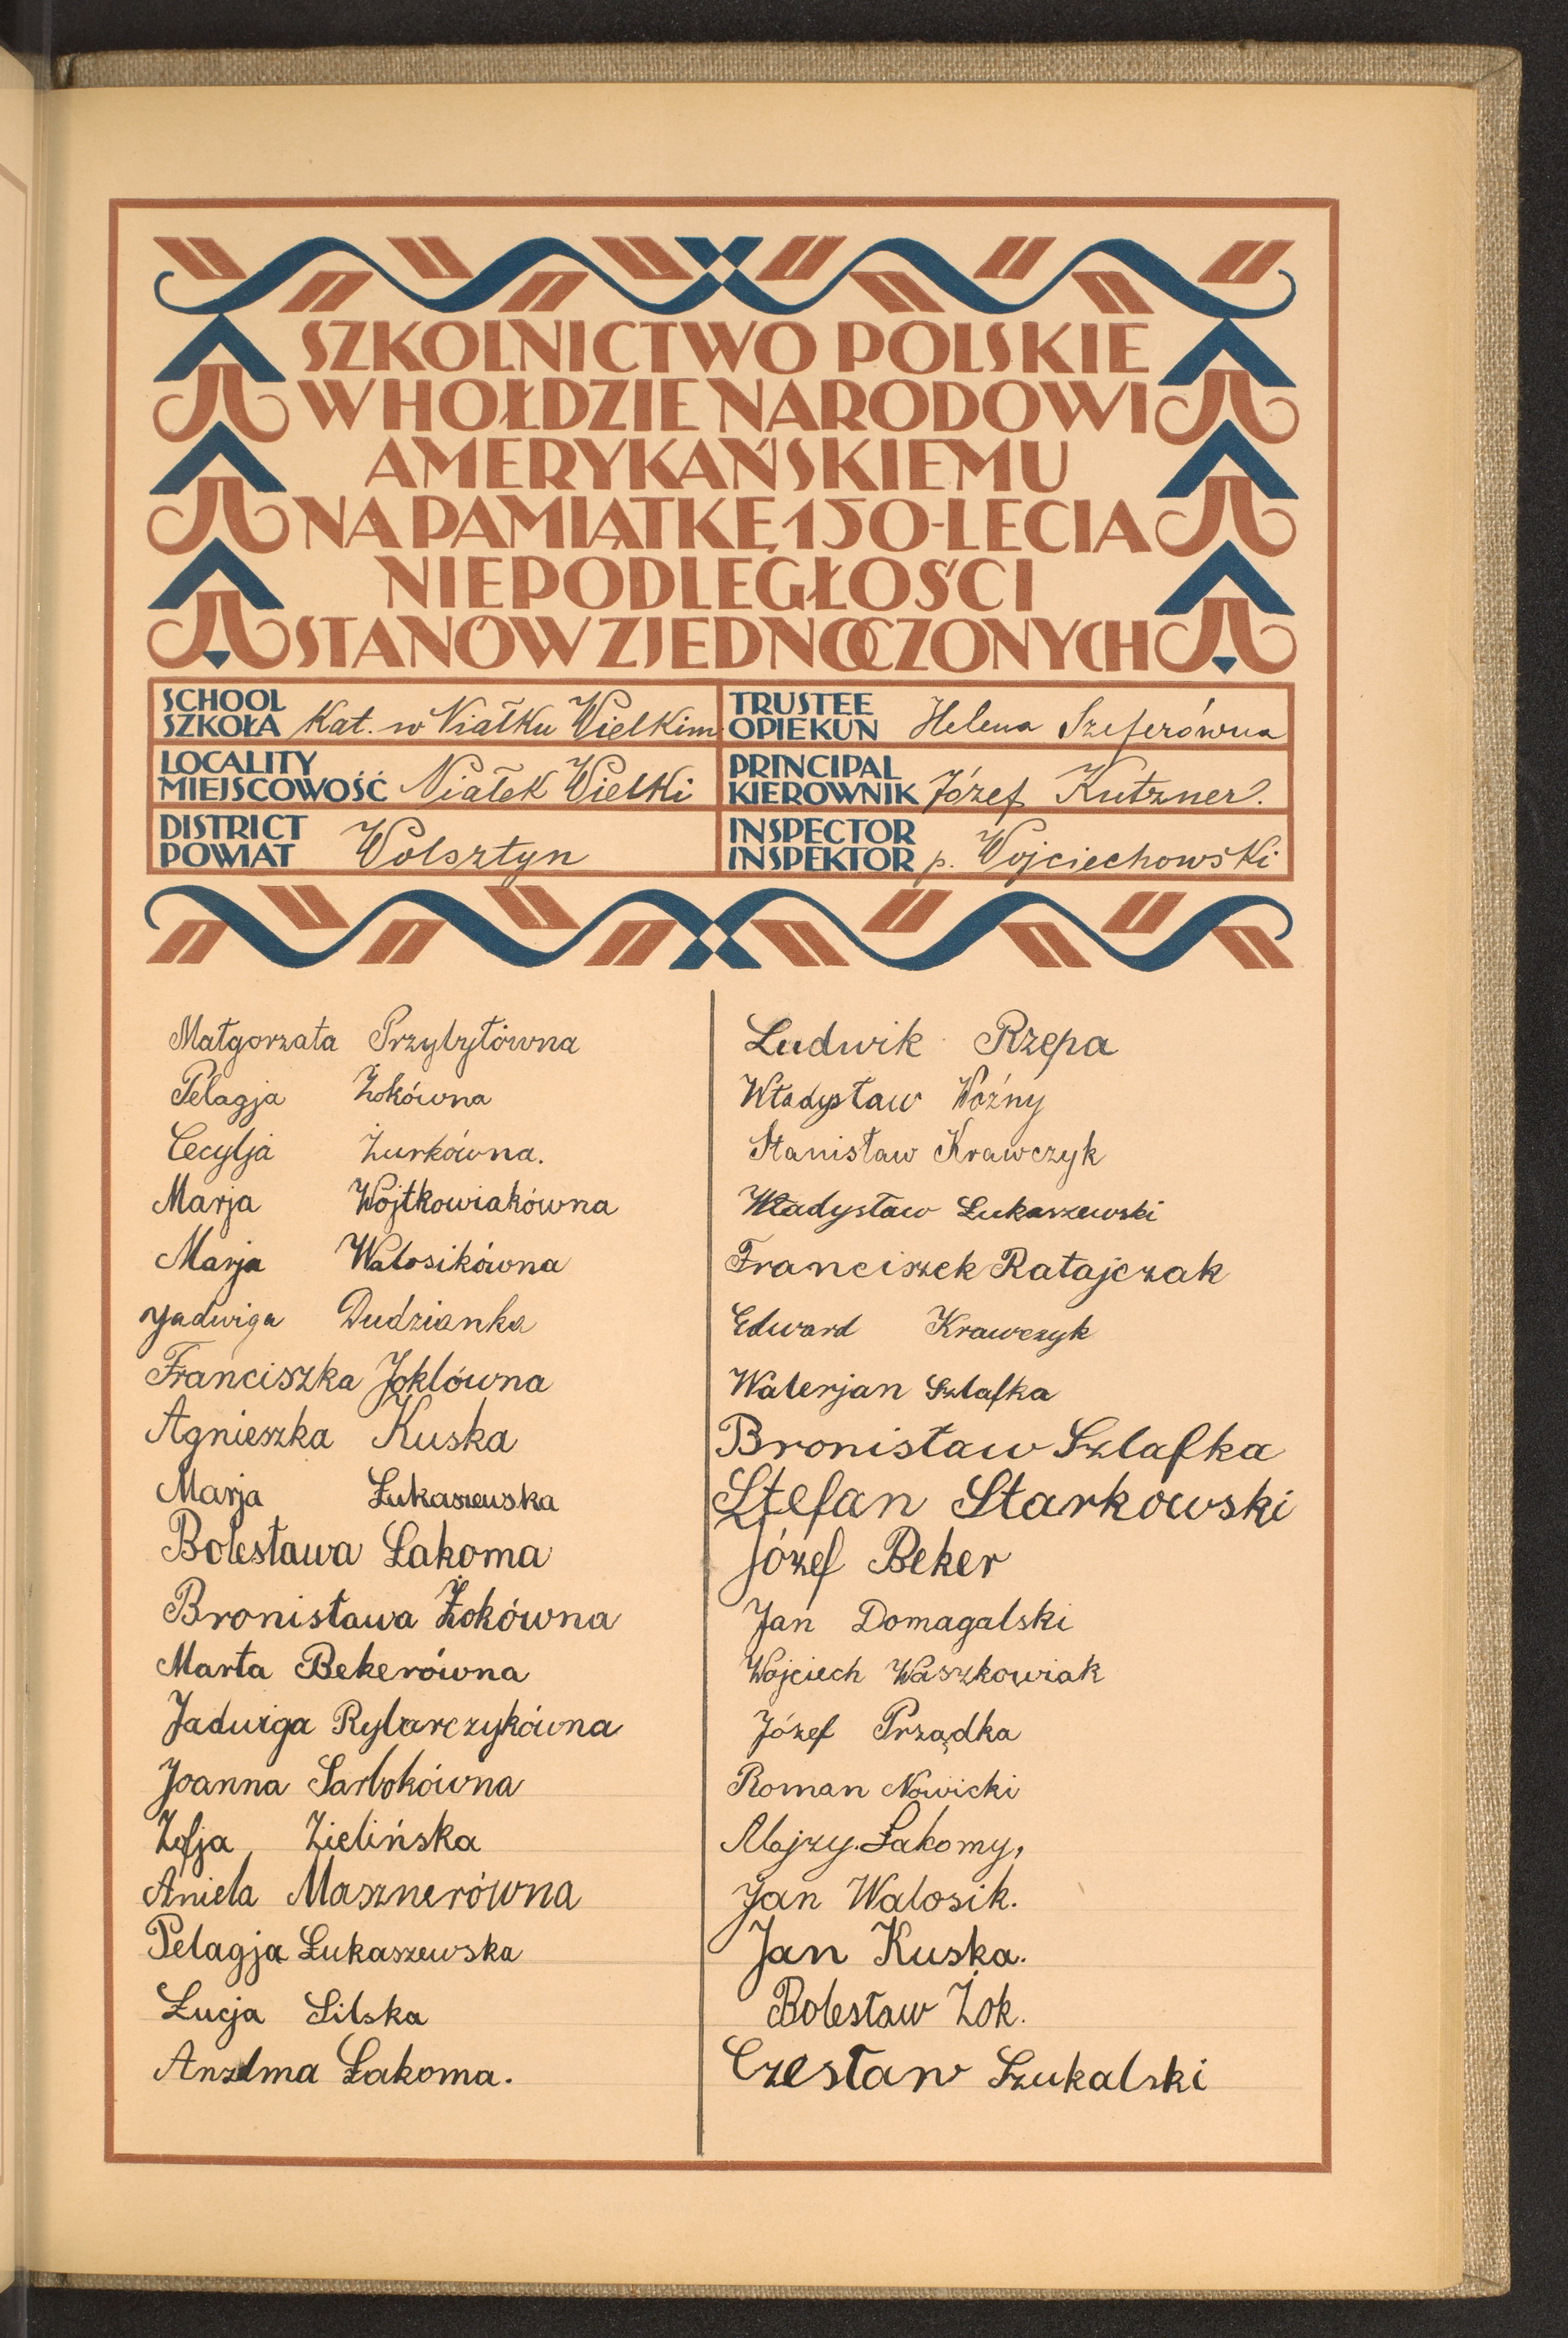 SZKOLNICTWO POLSKIE
W HOŁDZIE NARODOWI
AMERYKAŃSKIEMU
NA PAMIĄTKĘ 150-LECIA
NIEPODLEGŁOŚCI
STANÓW ZJEDNOCZONYCH
SCHOOL
SZKOŁA Kat. w Niałku Wielkim
TRUSTEE
OPIEKUN Helena Szeferówna
LOCALITY
MIEJSCOWOŚĆ Niałek Wielki
PRINCIPAL
KIEROWNIK Józef Kutzner.
DISTRICT
POWIAT Wolsztyn
INSPECTOR
INSPEKTOR p. Wojciechowski
Małgorzata Przybyłówna
Pelagja Żokówna
Cecylja Żurkówna.
Marja Wojtkowiakówna
Marja Walosikówna
Jadwiga Dudzianka
Franciszka Joklówna
Agnieszka Kuska
Marja Łukaszewska
Bolesława Łakoma
Bronisława Żokówna
Marta Bekerówna
Jadwiga Rybarczykówna
Joanna Sarbokówna
Zofja Zielińska
Aniela Masznerówna
Pelagja Łukaszewska
Łucja Silska
Anzelma Łakoma.
Ludwik Rzepa
Władysław Woźny
Stanisław Krawczyk
Władysław Łukaszewski
Franciszek Ratajczak
Edward Krawczyk
Walerjan Szlafka
Bronisław Szlafka
Stefan Starkowski
Józef Beker
Jan Domagalski
Wojciech Waszkowiak
Józef Prządka
Roman Nowicki
Alojzy. Łakomy,
Jan Walosik.
Jan Kuska.
Bolesław Żok.
Czesław Szukalski